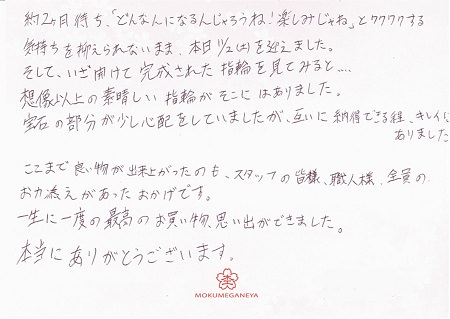 約2ヶ月待ち、「どんなんになるんじゃろうね!楽しみじゃね」とワクワクする
気持ちを抑えられないまま、本日11/2(土)を迎えました。
そして、いざ開けて完成された指輪を見てみると....
想像以上の素晴しい指輪がそこにはありました。
宝石の部分が少し心配をしていましたが、互いに納得できる程、キレイに
ありました
ここまで良い物が出来上がったのも、スタッフの皆様、職人様、全員の
お力添えがあったおかげです。
一生に一度の最高のお買い物、思い出ができました。
本当にありがとうございます。
MOKUMEGANEYA